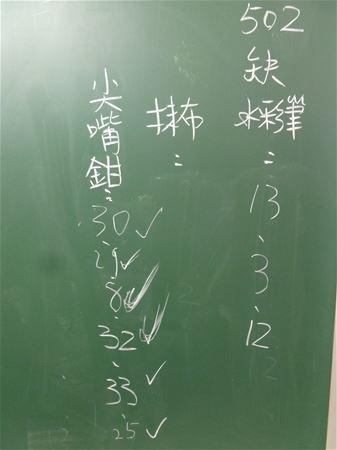 502缺水彩筆：13、3、12
抹布：
尖嘴鉗：30、29、8、32、33、25